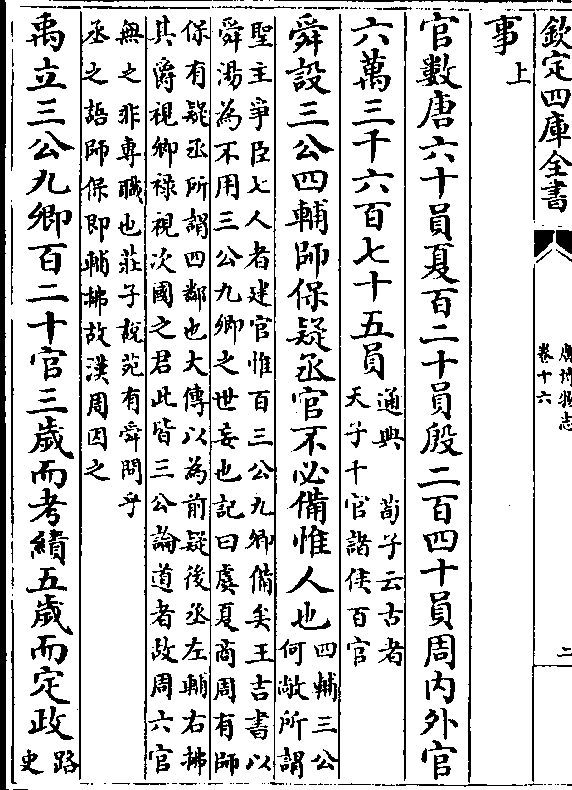 欽定四庫全書
廣博物志
卷十六
二
事上
官數唐六十員夏百二十員殷二百四十員周內外官
六萬三千六百七十五員
通典　荀子云古者
天子千官諸侯百官
舜設三公四輔師保疑丞官不必備惟人也
四輔三公
何敞所謂
聖主爭臣七人者建官惟百三公九卿備矣王吉書以
舜湯為不用三公九卿之世妄也記曰虞夏商周有師
保有疑丞所謂四鄰也大傳以為前疑後丞左輔右拂
其爵視卿禄視次國之君此皆三公論道者故周六官
無之非專職也莊子說苑有舜問乎
丞之語師保即輔拂故漢周因之
禹立三公九卿百二十官三歲而考績五歲而定政
路
史